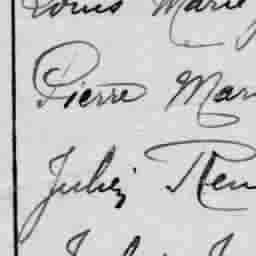 Louis Marie
Pierre Mari
Julien Ren